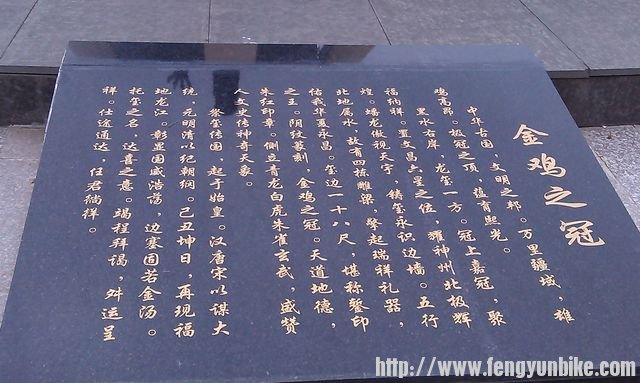 金鸡之冠
中华古国，文明之邦。万里疆域，雄
鸡高昂。极冠之顶，蕴育熙光。
黑水右岸，龙玺一方。冠上嘉冠，聚
福纳祥。置文昌六星之位，耀神州北极辉
煌。端龙傲视天宇，铸玺永识边墙。五行
北地属水，故有四栋雕梁，擎起瑞祥礼器，
佑我华夏永昌。玺边一十八尺，堪称鏨印
之王。阴纹篆刻，金鸡之冠。天道地德，
朱红印章。侧立青龙白虎朱雀玄武，盛赞
人文史传神奇天象。
祭玺传国，起于始皇。汉唐宋以谋大
统，元明清以纪朝纲。己丑坤日，再现福
地龙江。彰显国威浩荡，边塞固若金汤。
托玺之名，达喜之意。竭程拜谒，舛运呈
祥。仕途通达，任君徜徉。
http://www.fengyunbike.com